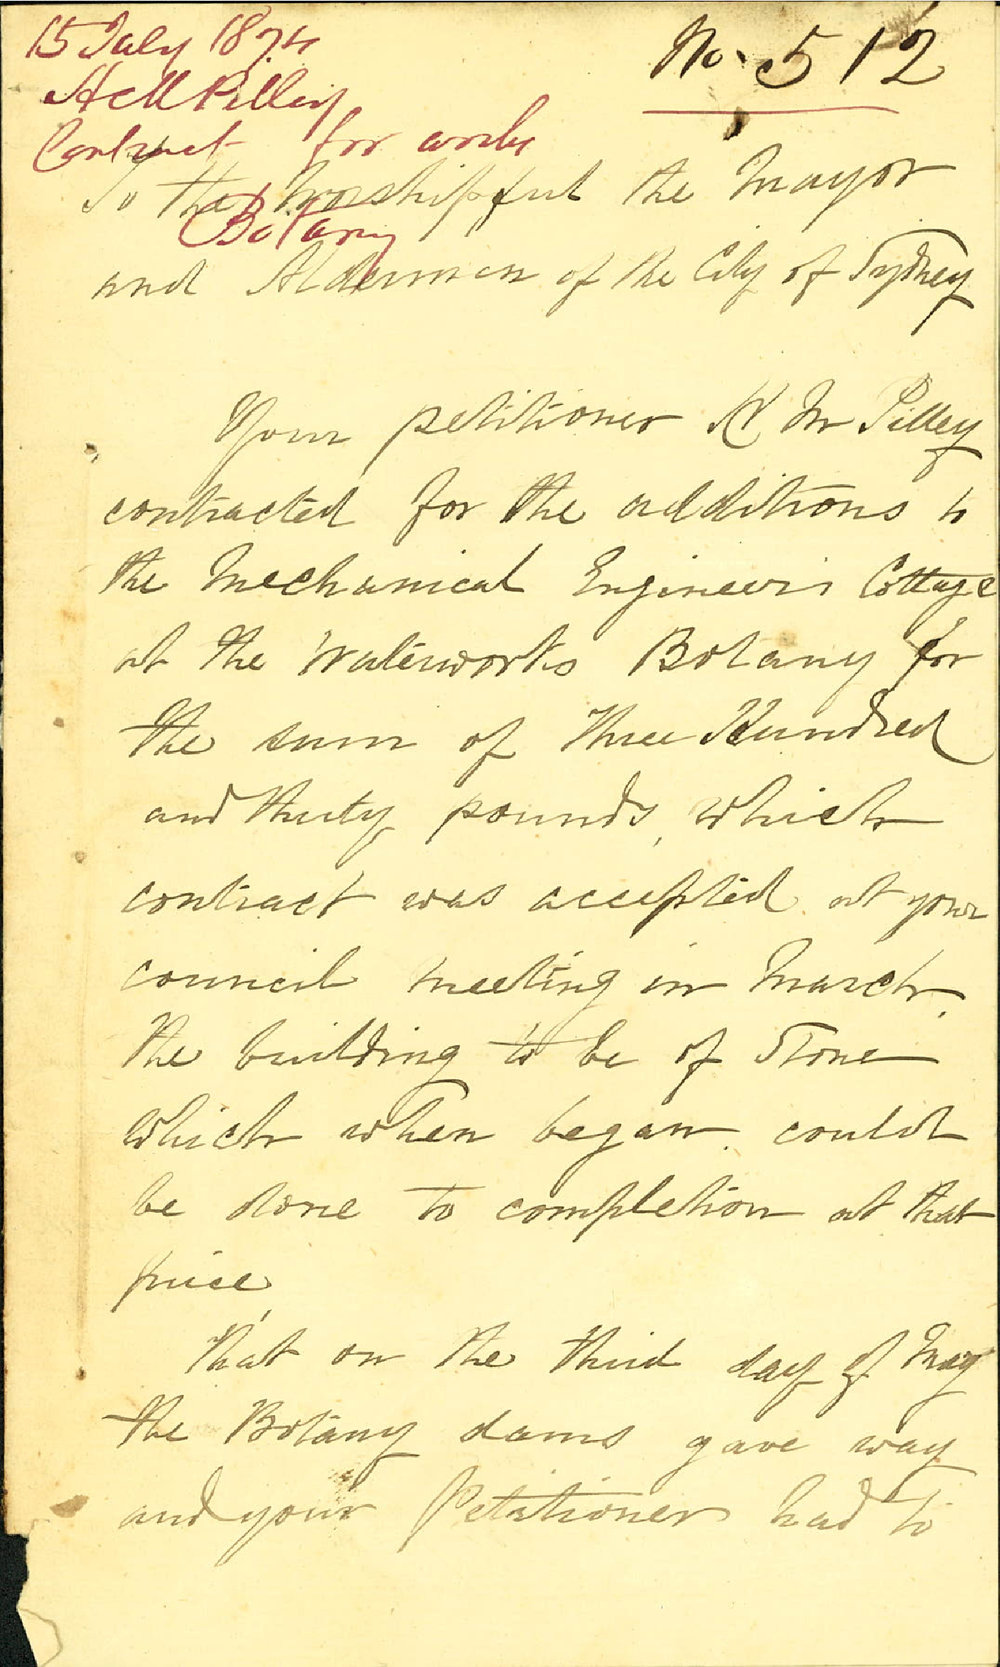 15 July 1874
No. 512
H M Pilley
Contract for works
Botany
To the Worshipful the Mayor
and Aldermen of the City of Sydney
Your petitioner H M Pilley
contracted for the additions to
the Mechanical Engineers Cottage
at the Waterworks Botany for
the sum of Three Hundred
and thirty pounds, which
contract was accepted at your
council meeting in March.
The building to be of Stone
which when began could
be done to completion at that
price
That on the third day of May
the Botany dams gave way
and your Petitioner had to